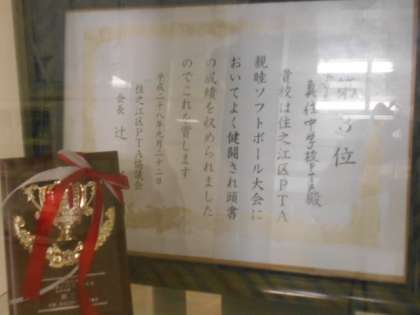 第3位
真住中学校PTA殿
貴校は住之江区PTA
親睦ソフトボール大会に
おいてよく健闘され頭書
の成績を収められました
のでこれを賞します
平成二十八年九月二十二日
住之江区PTA協議会
会長 辻